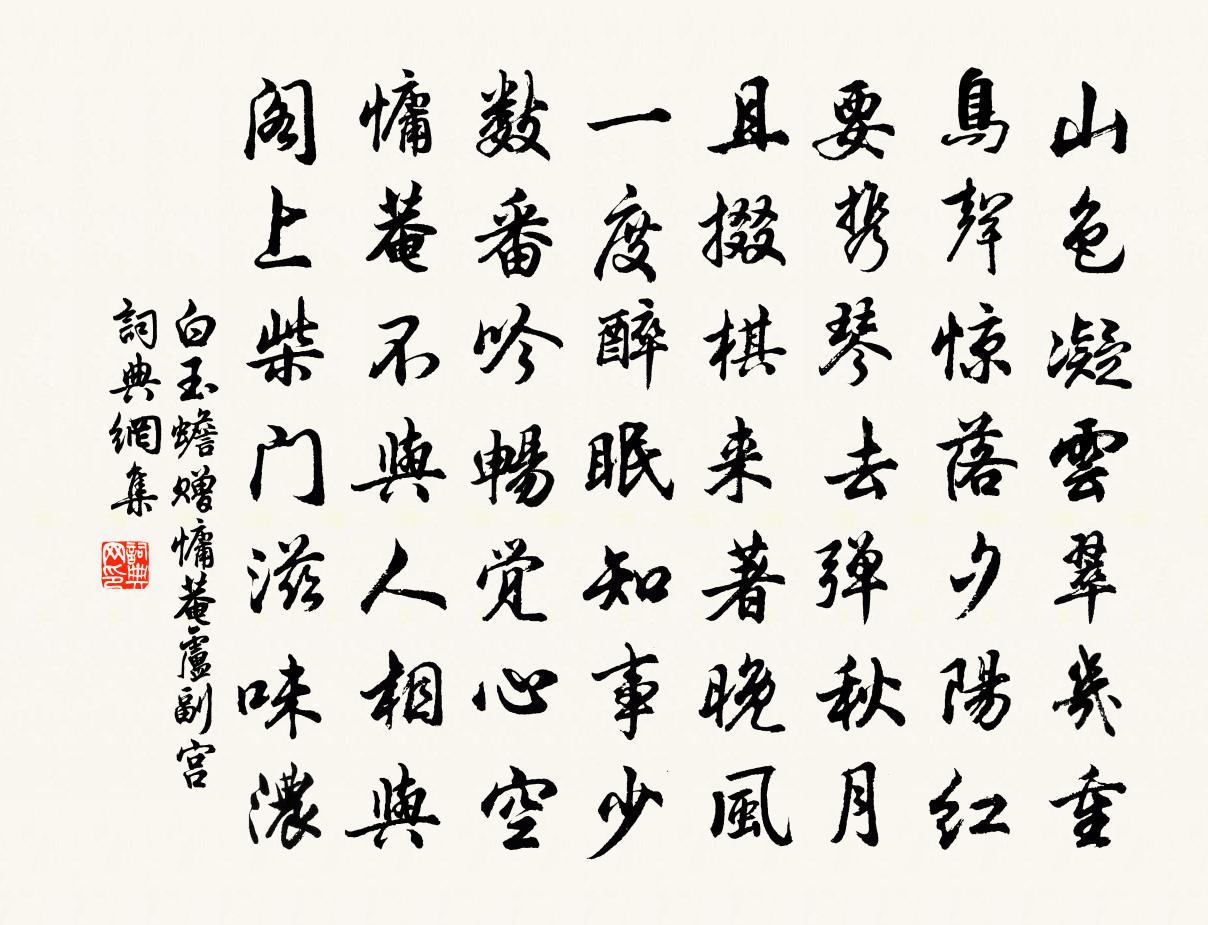 山色凝雲翠幾重
鳥聲惊落夕陽红
要携琴去弹秋月
且掇棋来著晚風
一度醉眠知事少
数番吟暢觉心空
慵菴不與人相與
阁上柴门滋味濃
白玉蟾赠慵菴盧副宫
詞典網集
詞典網印